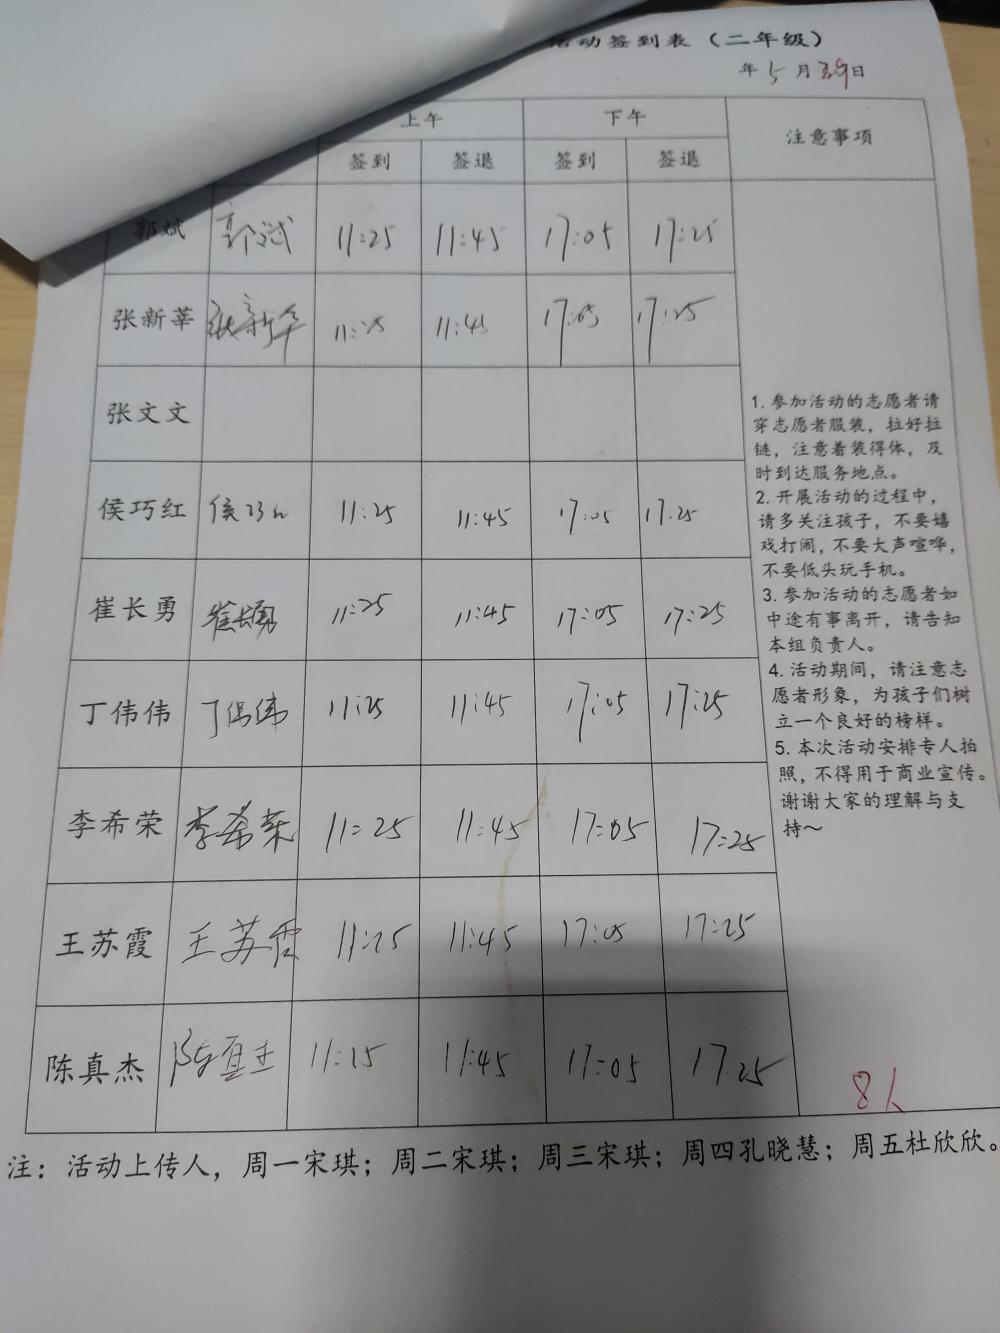 活动签到表（二年级）
年5月29日
上午 下午 注意事项
签到 签退 签到 签退
郭斌 郭斌 11:25 11:45 17:05 17:25
张新莘 张新华 11:25 11:45 17:05 17:25
张文文
侯巧红 侯巧红 11:25 11:45 17:05 17:25
崔长勇 崔长勇 11:25 11:45 17:05 17:25
丁伟伟 丁伟伟 11:25 11:45 17:05 17:25
李希荣 李希荣 11:25 11:45 17:05 17:25
王苏霞 王苏霞 11:25 11:45 17:05 17:25
陈真杰 11:25 11:45 17:05 17:25
1. 参加活动的志愿者请
穿志愿者服装，拉好拉
链，注意着装得体，及
时到达服务地点。
2. 开展活动的过程中，
请多关注孩子，不要嬉
戏打闹，不要大声喧哗，
不要低头玩手机。
3. 参加活动的志愿者如
中途有事离开，请告知
本组负责人。
4. 活动期间，请注意志
愿者形象，为孩子们树
立一个良好的榜样。
5. 本次活动安排专人拍
照，不得用于商业宣传。
谢谢大家的理解与支
持～
8人
注：活动上传人，周一宋琪；周二宋琪；周三宋琪；周四孔晓慧；周五杜欣欣。